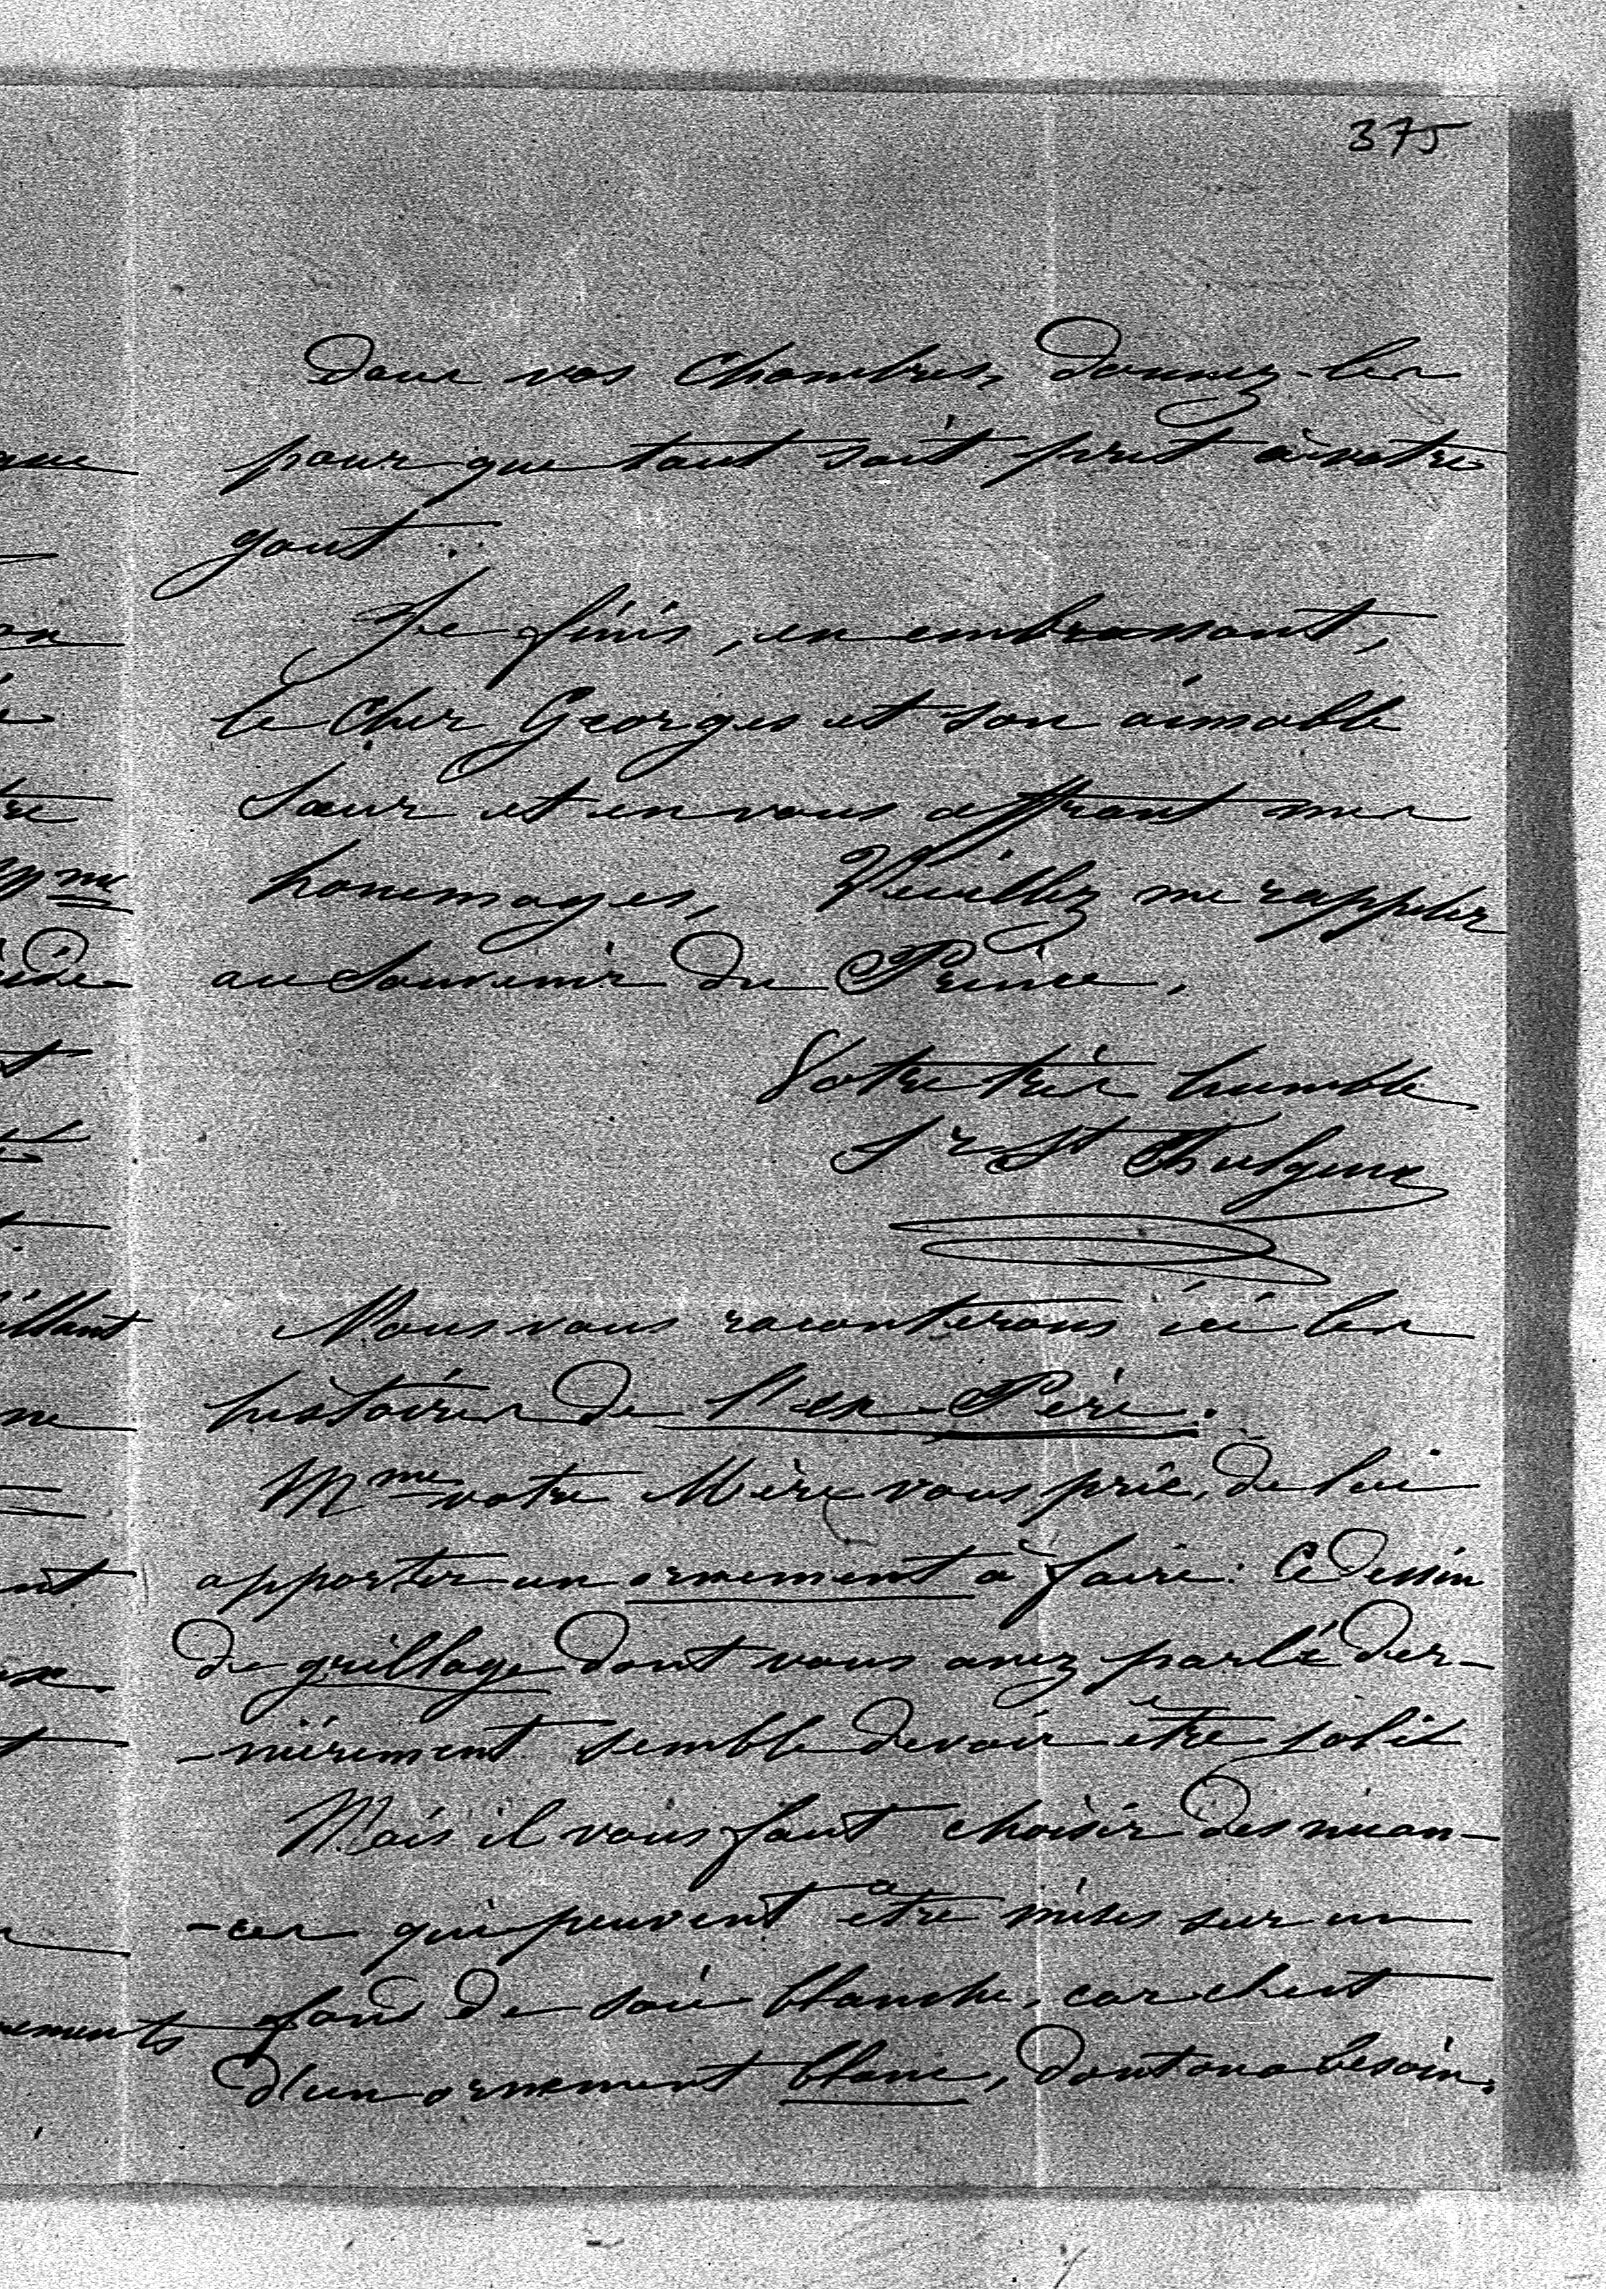 375
dans vos Chambres, donnez-les
pour que tout soit pret à votre
gout.
Je finis, en embrassant,
le Cher Georges et son aimable
Sœur et en vous offrant mes
hommages, Veuillez me rappeler
au Souvenir du Prince.
Votre très humble
Sr St Fulgence
Nous vous raconterons ici les
histoires de l'ex-Père.
Mme votre Mère vous prie, de lui
apporter un ornement à faire: Ce dessin
de grillage dont vous avez parlé der-
-nièrement semble devoir être joli
Mais il vous faut choisir des nuan-
-ces qui peuvent être mises sur un
fond de soie blanche, car c'est
d'un ornement blanc, dont on a besoin.